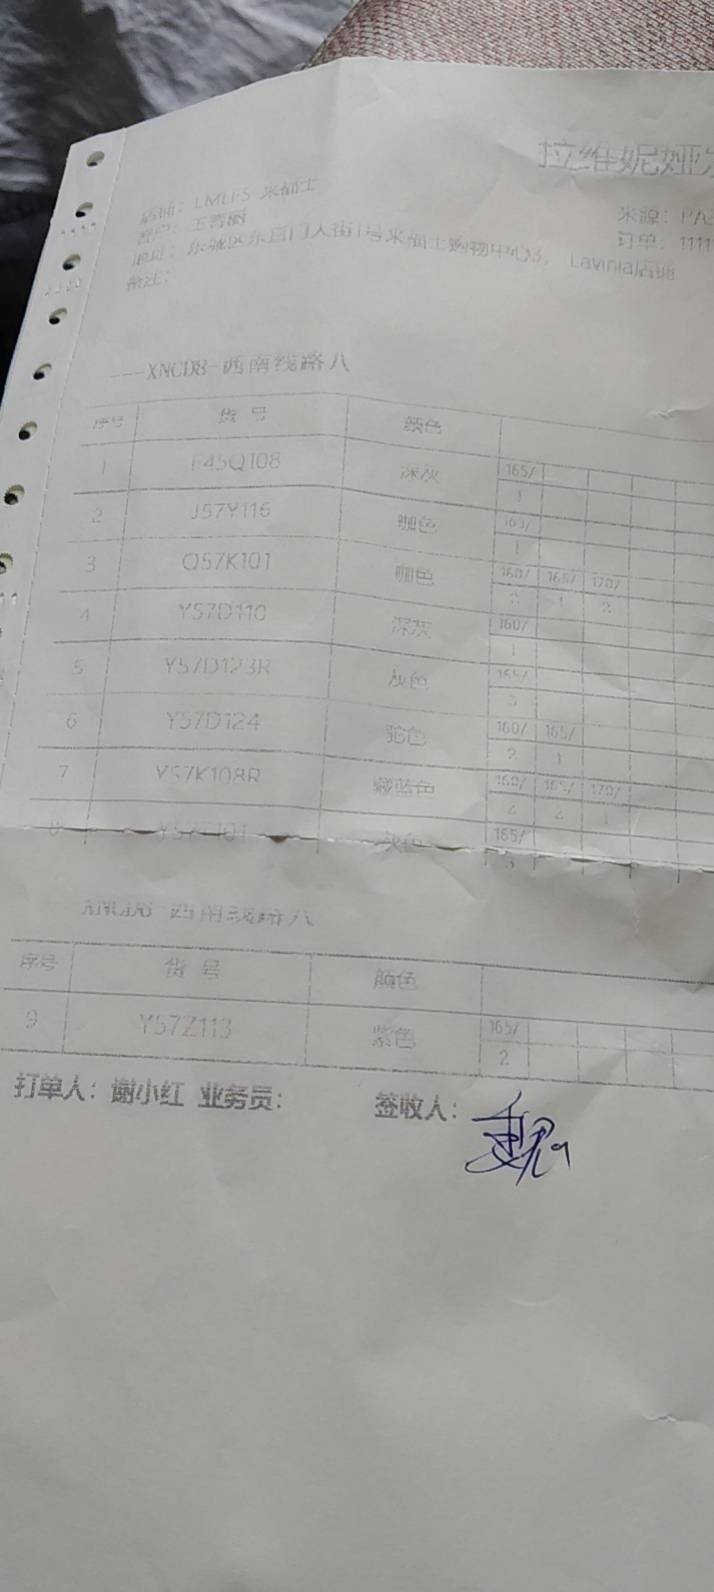 拉维妮娅
店铺: LMLFS-来福士
来源: PA
客户: 王
订单: 1111
地址: 东城区东直门大街1号来福士购物中心3, Lavinia店铺
备注:
XNCD8-西南线路八
序号 货 号 颜色
1 F45Q108 深灰 165/
1
2 J57Y116 咖色 165/
1
3 Q57K101 咖色 160/ 165/ 170/
1 2
4 Y57D110 深灰 160/
1
5 Y57D123R 灰色 165/
3
6 Y57D124 驼色 160/ 165/
2 1
7 Y57K108R 藏蓝色 160/ 165/ 170/
2 2 1
8 165/
XNCD8-西南线路八
序号 货 号 颜色
9 Y57Z113 紫色 165/
2
打单人: 谢小红 业务员: 签收人: 魏